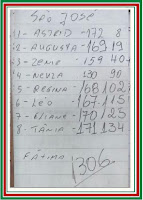 SÃO JOSÉ
1 - ASTRID - 172 8
2 - AUGUSTA - 169 19
3 - ZENIE - 159 40
4 - NEUZA - 130 90
5 - REGINA - 168 102
6 - LÉO - 167 115
7 - ELIANE - 170 125
8 - TÂNIA - 171 134
FÁTIMA 1306